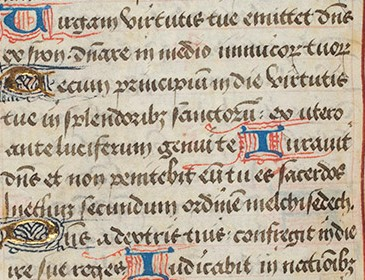 Virgam virtutis tue emittet dns
ex syon. dnare in medio inimicor tuor
Tecum principium in die virtutis
tue in splendoribz sanctoru: ex utero
ante luciferum genui te Iuravit
dns et non penitebit eu tu es sacerdos
in ethnu secundum ordinem melchisedech.
Dns a dextris tuis: confregit in die
ire sue reges Iudicabit in nationibz